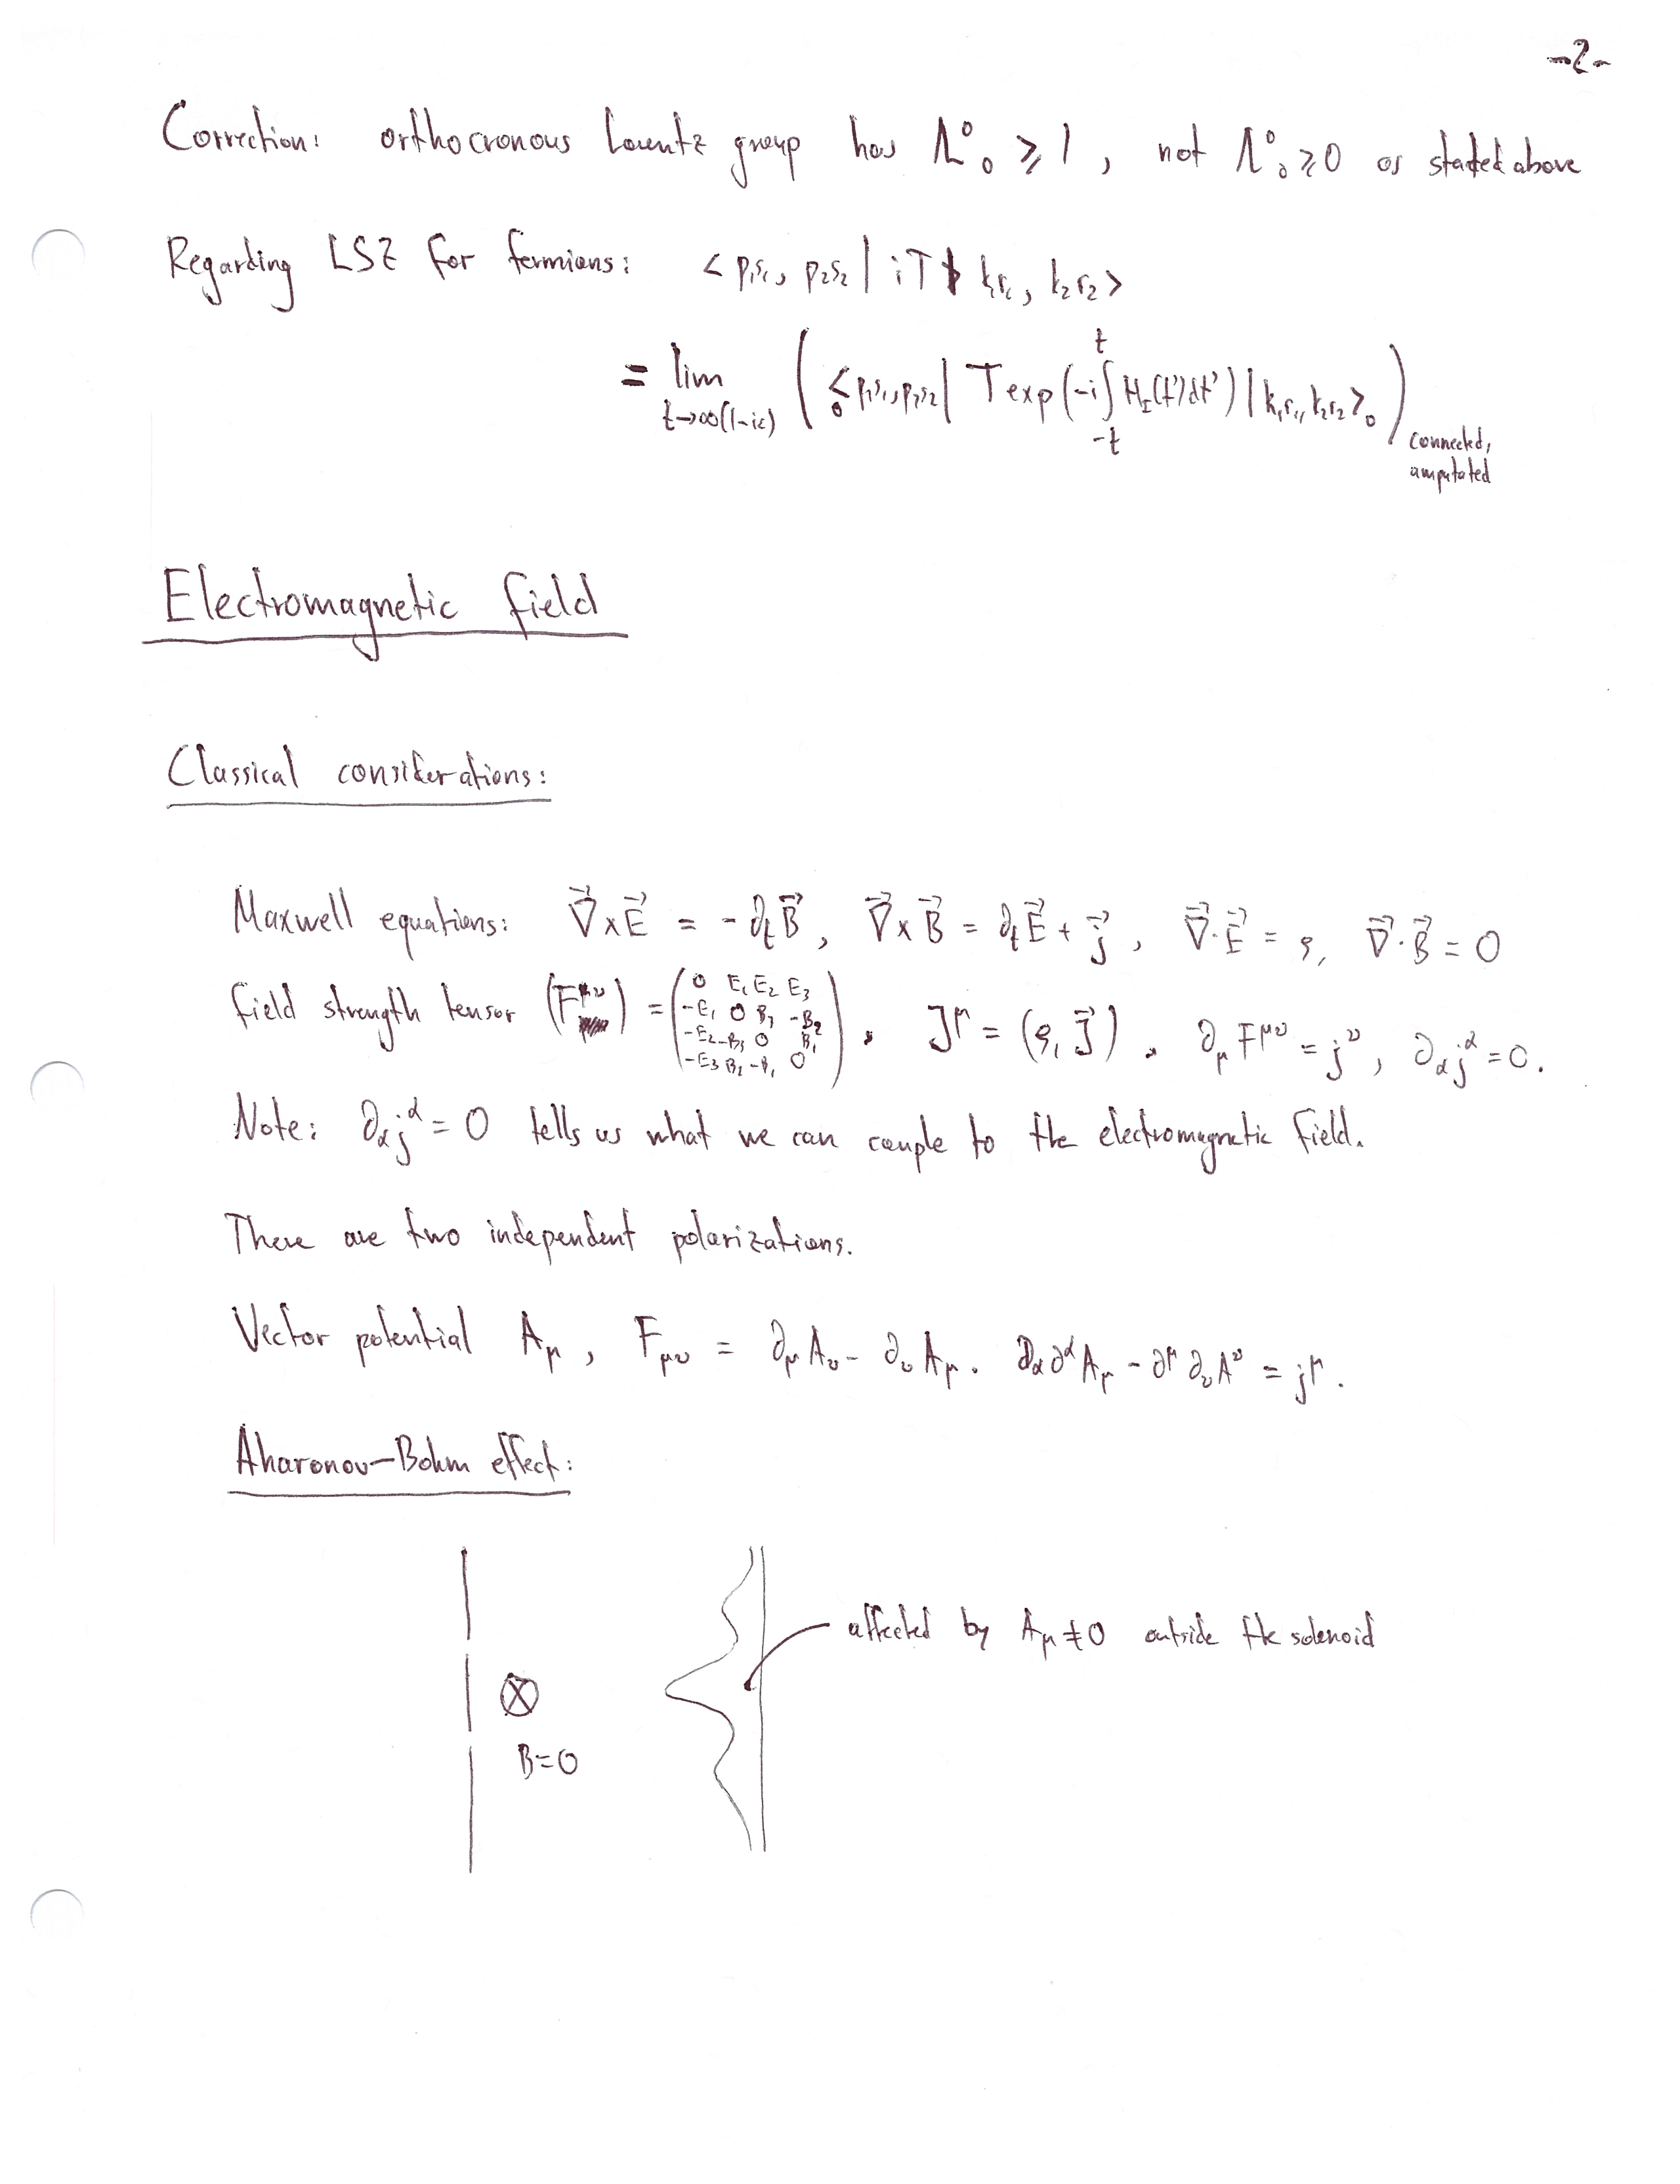 -2-
Correction: orthocronous Lorentz group has Λ⁰₀ ⩾ 1, not Λ⁰₀ ⩾ 0 as stated above
Regarding LSZ for fermions: < p₁s₁, p₂s₂ | iT | k₁r₁, k₂r₂ >
= lim_{t→∞(1-iε)} ( ₀< p₁s₁, p₂s₂ | T exp(-i ∫_{-t}^{t} H_I(t')dt') | k₁r₁, k₂r₂ >₀ )_{connected, amputated}
Electromagnetic field
Classical considerations:
Maxwell equations: ∇⃗ × E⃗ = - ∂ₜB⃗, ∇⃗ × B⃗ = ∂ₜE⃗ + j⃗, ∇⃗·E⃗ = ρ, ∇⃗·B⃗ = 0
field strength tensor (F^{μν}) = ( 0 E₁ E₂ E₃
-E₁ 0 B₃ -B₂
-E₂ -B₃ 0 B₁
-E₃ B₂ -B₁ 0 ), J^μ = (ρ, j⃗). ∂_μ F^{μν} = j^ν, ∂_α j^α = 0.
Note: ∂_α j^α = 0 tells us what we can couple to the electromagnetic field.
There are two independent polarizations.
Vector potential A_μ, F_{μν} = ∂_μ A_ν - ∂_ν A_μ. ∂_α ∂^α A_μ - ∂^μ ∂_ν A^ν = j^μ.
Aharonov-Bohm effect:
affected by A_μ ≠ 0 outside the solenoid
B=0